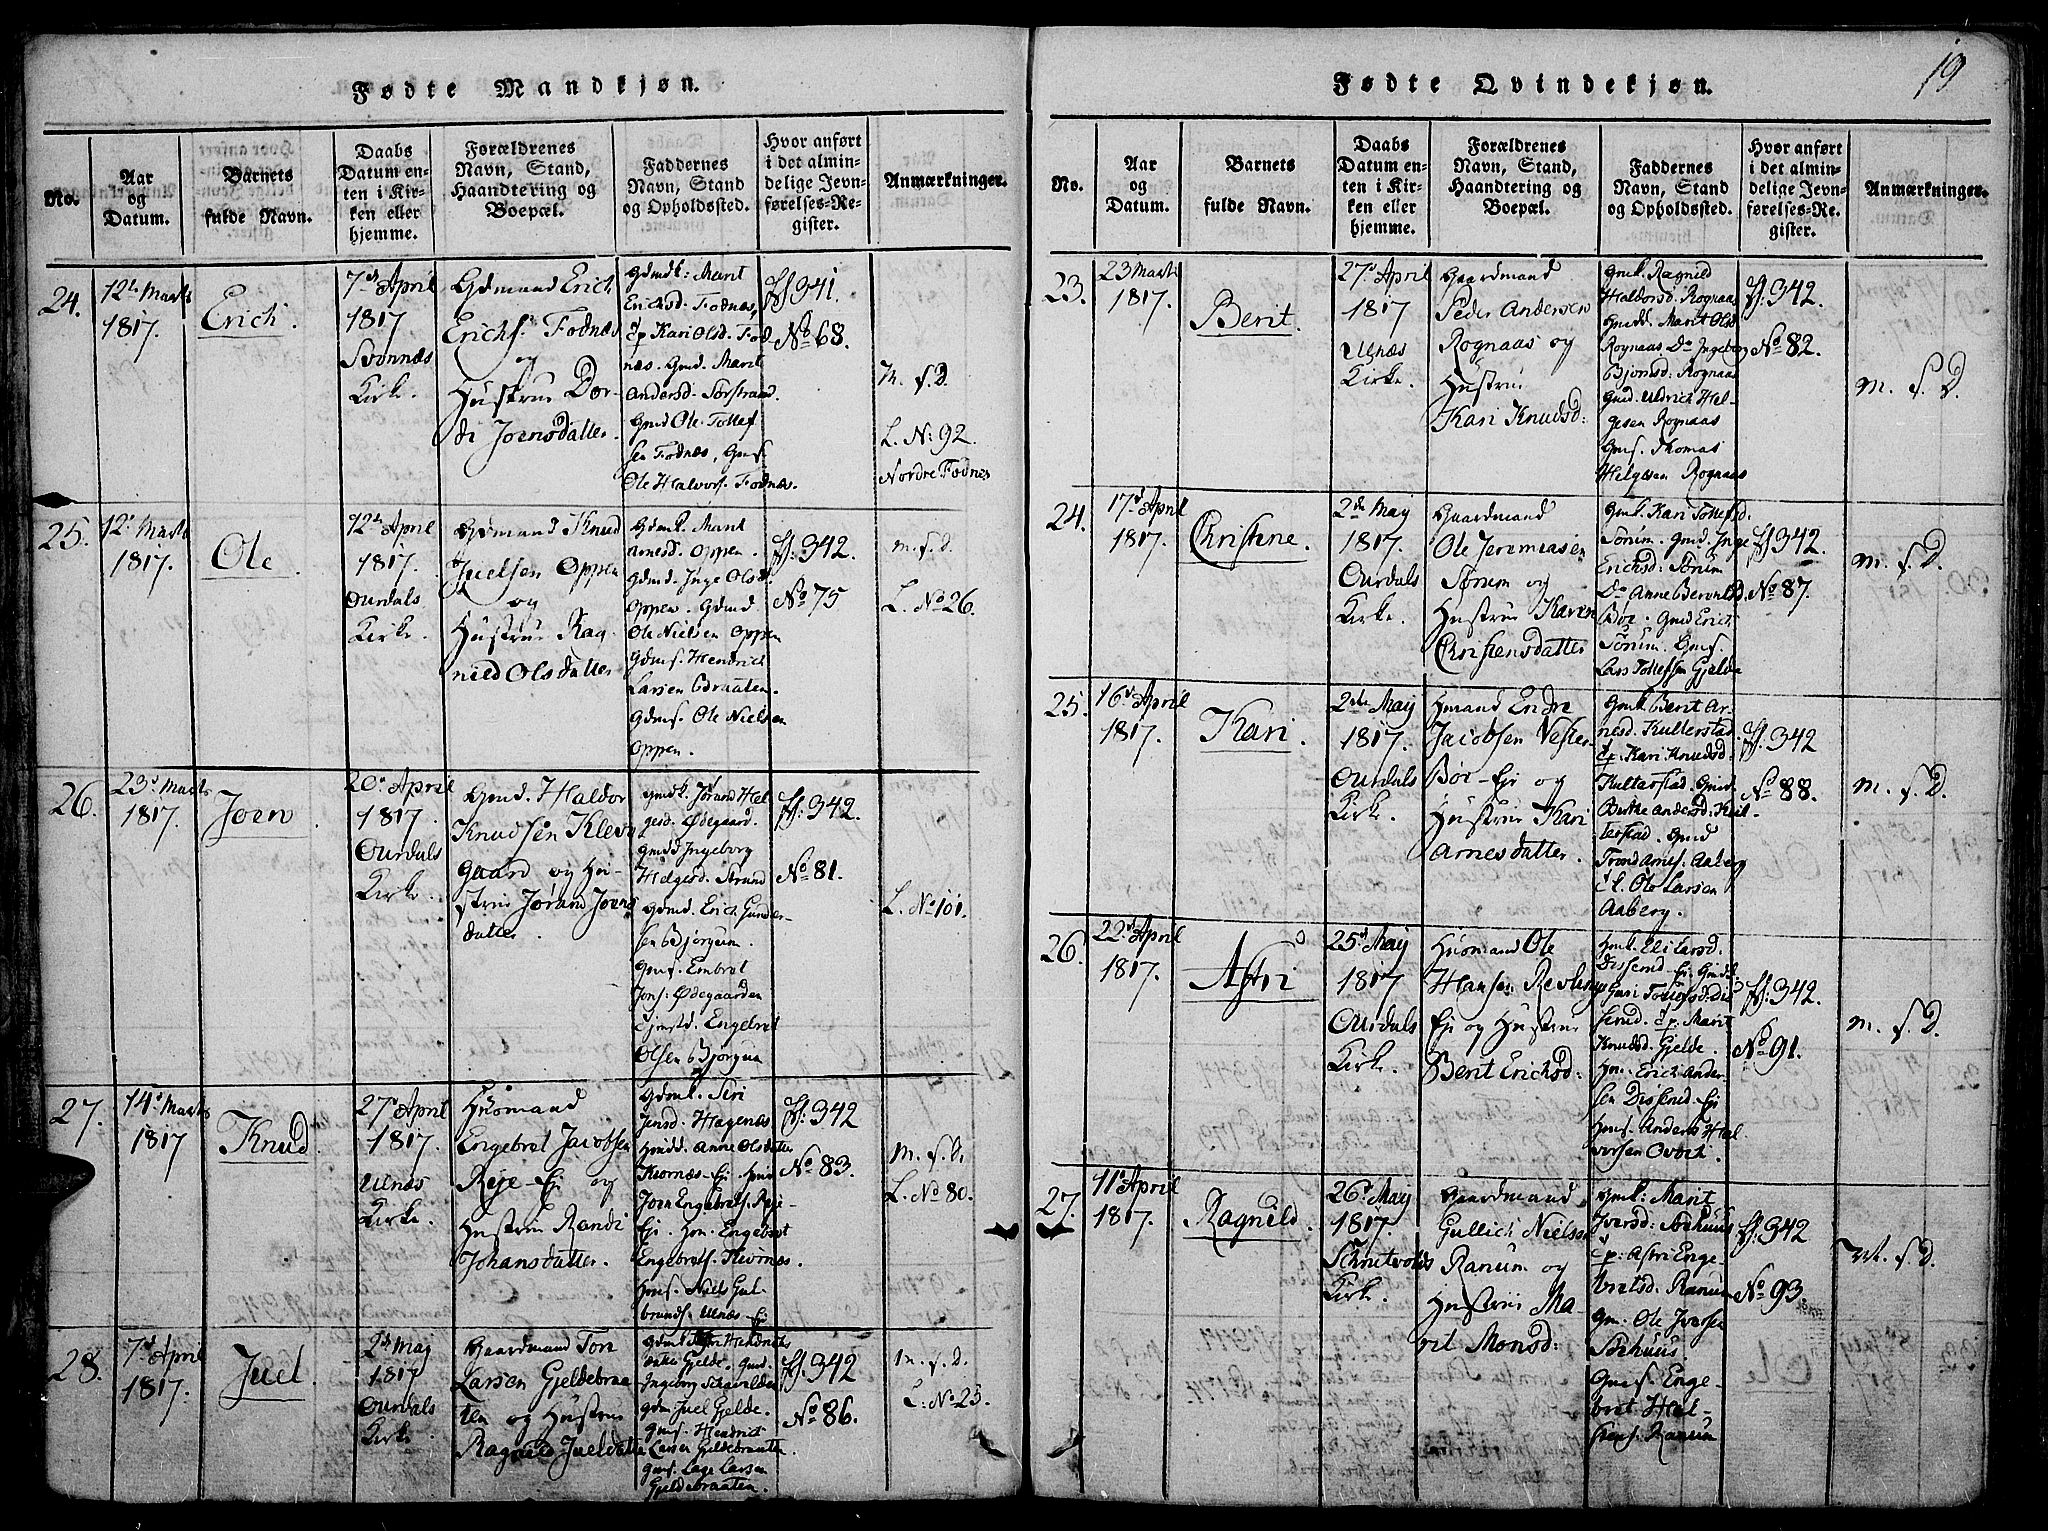 19
Fødte Mandkjøn.
No.
Aar
og
Datum.
Barnets
fulde Navn.
Daabs
Datum en-
ten i Kir-
ken eller
hjemme.
Forældrenes
Navn, Stand,
Haandtering og
Boepæl.
Faddernes
Navn, Stand
og Opholdssted.
Hvor anført
i det almin-
delige Jevn-
førelses-Re-
gister.
Anmærkninger.
24.
12te Marts
1817.
Erich.
7de April
1817
Svennæs
Kirke.
Gdmand Erich
Erichs. Fodnæs
og
Hustrue Dor-
de Joensdatter.
Gdmdk: Marit
Erichsd. Fodnæs,
Kari Olsd. Fod-
næs. Gmd. Marit
Andersd. Torstrand.
Gmd Ole Tollef
sen Fodnæs, Gms.
Ole Halvors. Fodnæs.
Fl 341.
No 68.
M. f. D.
L. No: 92.
Nordre Fodnes
25.
12te Marts
1817.
Ole.
12te April
1817.
Ourdals
Kirke.
Gdmand Knud
Juelsen Oppen
og
Hustrue Rag-
nild Olsdatter
Gdmk. Marit
Arnesd. Oppen.
Gdmd. Inge Olsd.
Oppen. Gdmd
Ole Nielsen Oppen
Gdms. Hendrich
Larsen Braaten.
Gdms. Ole Nielsen
Oppen.
Fl: 342.
No 75
m. f. D.
L. No 26.
26.
23d Marts
1817.
Joen.
20de April
1817.
Ourdals
Kirke.
Gmd. Haldor
Knudsen Klev
gaard og Hu-
strue Jørand Joens
datter.
Gmdk. Jørand Hel
gesd. Ødegaard.
Gmdd Ingeborg
Helgesd. Strand
Gdmd. Erich Gunder-
sen Bjørgum.
Gms. Embret
Jons: Ødegaarden
Engebret
Olsen Bjørgum
Fl: 342.
No 81.
L. No 101.
27.
14de Marts
1817
Knud.
27de April
1817.
Ulnæs
Kirke.
Huusmand
Engebret Jacobsen
Reje-Ej og
Hustrue Randi
Johansdatter.
Gdmk. Siri
Jensd. Hagenæs
Hmdd. Anne Olsdatter
Thornæs-Ej Hmd
Joen Engebrets. Reje-
Ej. Hm. Engebret
Engebrets. Thornæs.
Hms. Niels Gul-
brands. Ulnæs-Ej
Fl: 342
No 83.
m. f. D.
L. No 80.
28.
7de April
1817.
Juel.
2den Maj
1817
Ourdals
Kirke
Gaardmand Tore
Larsen Gjeldebraa
ten og Hustrue
Ragnild Jueldatter
Gjelde. Gmd.
Ingeborg
Gdm Juel Gjelde.
Gms. Hendrich
Larsen Gjeldebraaten.
Gms. Lage Larsen
Gjeldebraaten.
Fl: 342
No 86.
m. f. D.
L: No 25.
Fødte Qvindekjøn.
No.
Aar
og
Datum.
Barnets
fulde Navn.
Daabs
Datum en-
ten i Kir-
ken eller
hjemme.
Forældrenes
Navn, Stand,
Haandtering og
Boepæl.
Faddernes
Navn, Stand
og Opholdssted.
Hvor anført
i det almin-
delige Jevn-
førelses-Re-
gister.
Anmærkninger.
23.
23 Marts
1817.
Berit.
27de April
1817
Ulnæs
Kirke.
Gaardmand
Peder Andersen
Rognaas og
Hustrue
Kari Knudsd:
Gmk. Ragnild
Haldorsd. Rognaas
Gmdd. Marit Olsd
Rognaas Do Ingeborg
Bjørnsd: Rognaas
Gmd. Uldrich Hel-
gesen Rognaas
Gms. Thomas
Helgesen Rognaas
Fl. 342.
No 82.
m. f. D.
24.
17de April
1817.
Christine.
2den May
1817.
Ourdals
Kirke.
Gaardmand
Ole Jeremiasen
Sørum og
Hustrue Karen
Christensdatter
Gmk. Kari Tollefsd.
Sørum. Gmd. Inge
Erichsd: Sørum
Do Anne
Bøe. Gmd Erich
Sørum. Gms.
Lars Tollefsen Gjelde
Fl 342.
No 87.
m. f. D.
25.
16de April
1817.
Kari.
2den Maj
1817.
Ourdals
Kirke.
Hmand Endre
Jacobsen Vester-
Bøe-Ej og
Hustrue Kari
Arnesdatter.
Gmk Berit Ar-
nesd. Kulterstad.
Kari Knudsd.
Kulterstad. Gmd.
Birthe Andersd: Kul-
terstad. Gmd
Trond Arnes. Aaberg
Ole Larsen
Aaberg.
Fl: 342
No 88.
m. f. D.
26.
22de April
1817.
Astri
25de Maj
1817
Ourdals
Kirke.
Huusmand Ole
Hansen
Ej og Hustrue
Berit Erichsd:
Hmk. Eli Larsd.
Disserud-Ej. Gmd.
Guri Tollefsd: Dis
serud. Marit
Knudsd. Gjelde.
Hm. Erich Ander-
sen Disserud-Ej
Hms. Anders Hal
vorsen
Fl: 342.
No 91.
m. f. D.
27.
11te April
1817.
Ragnild.
26de May
1817.
Schrutvolds
Kirke.
Gaardmand
Gullich Nielsen
Ranum og
Hustrue Ma-
rit Monsd:
Gmk: Marit
Iversd:
Astri Enge-
bretsd. Ranum
Gm. Ole Iversen
Gms. Enge-
bret Hal-
Ranum
Fl: 342
No 93.
M. f. D.